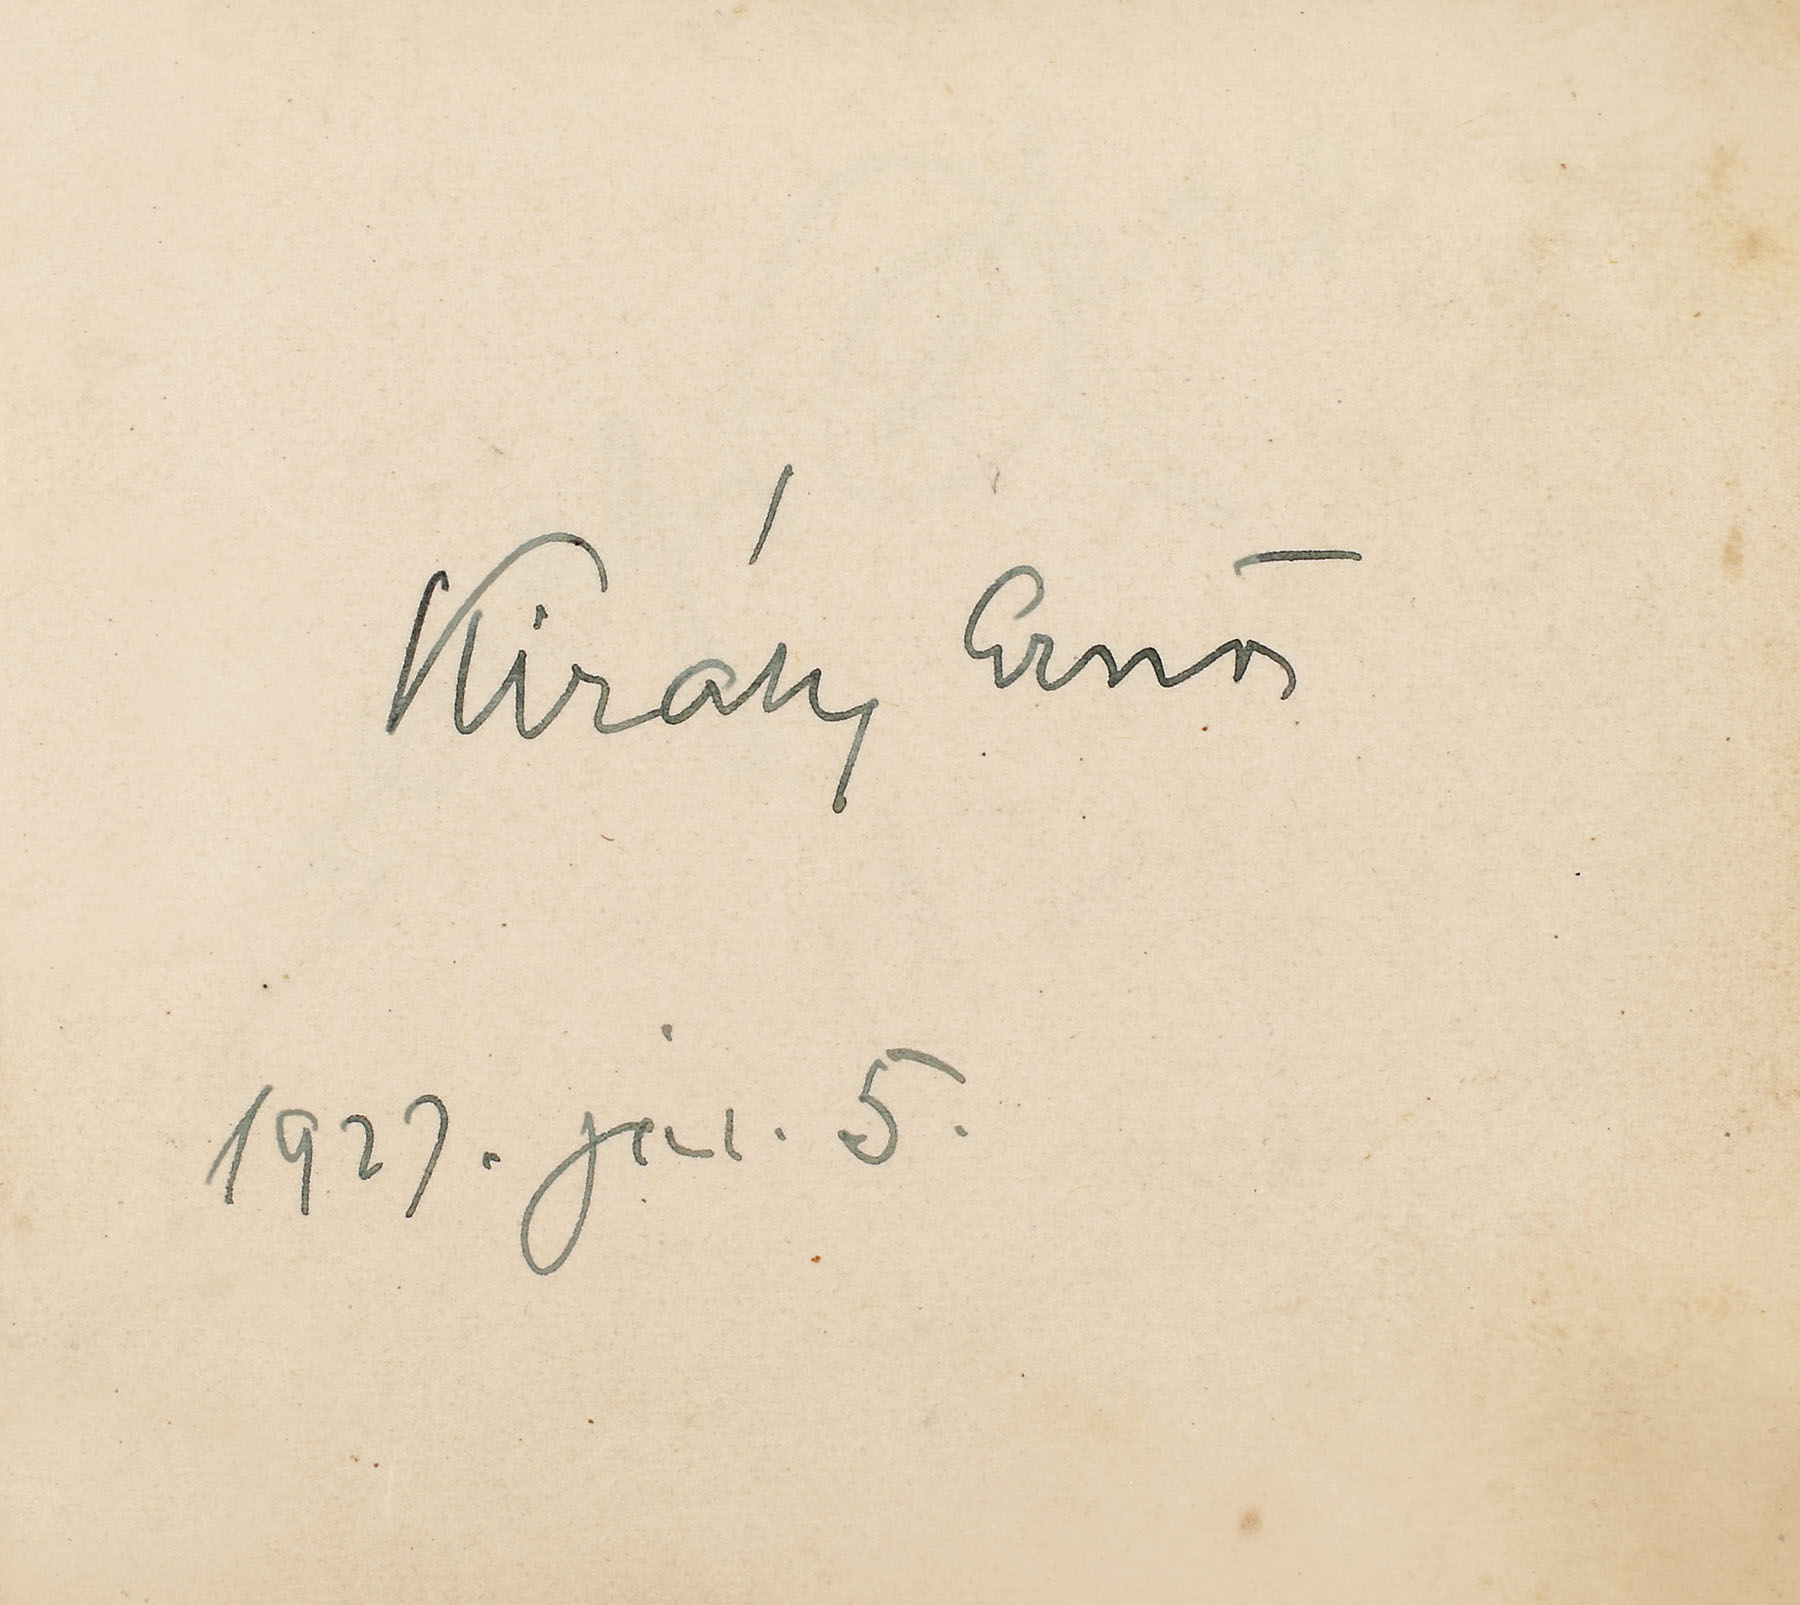 Király Ernő
1927. jan. 5.